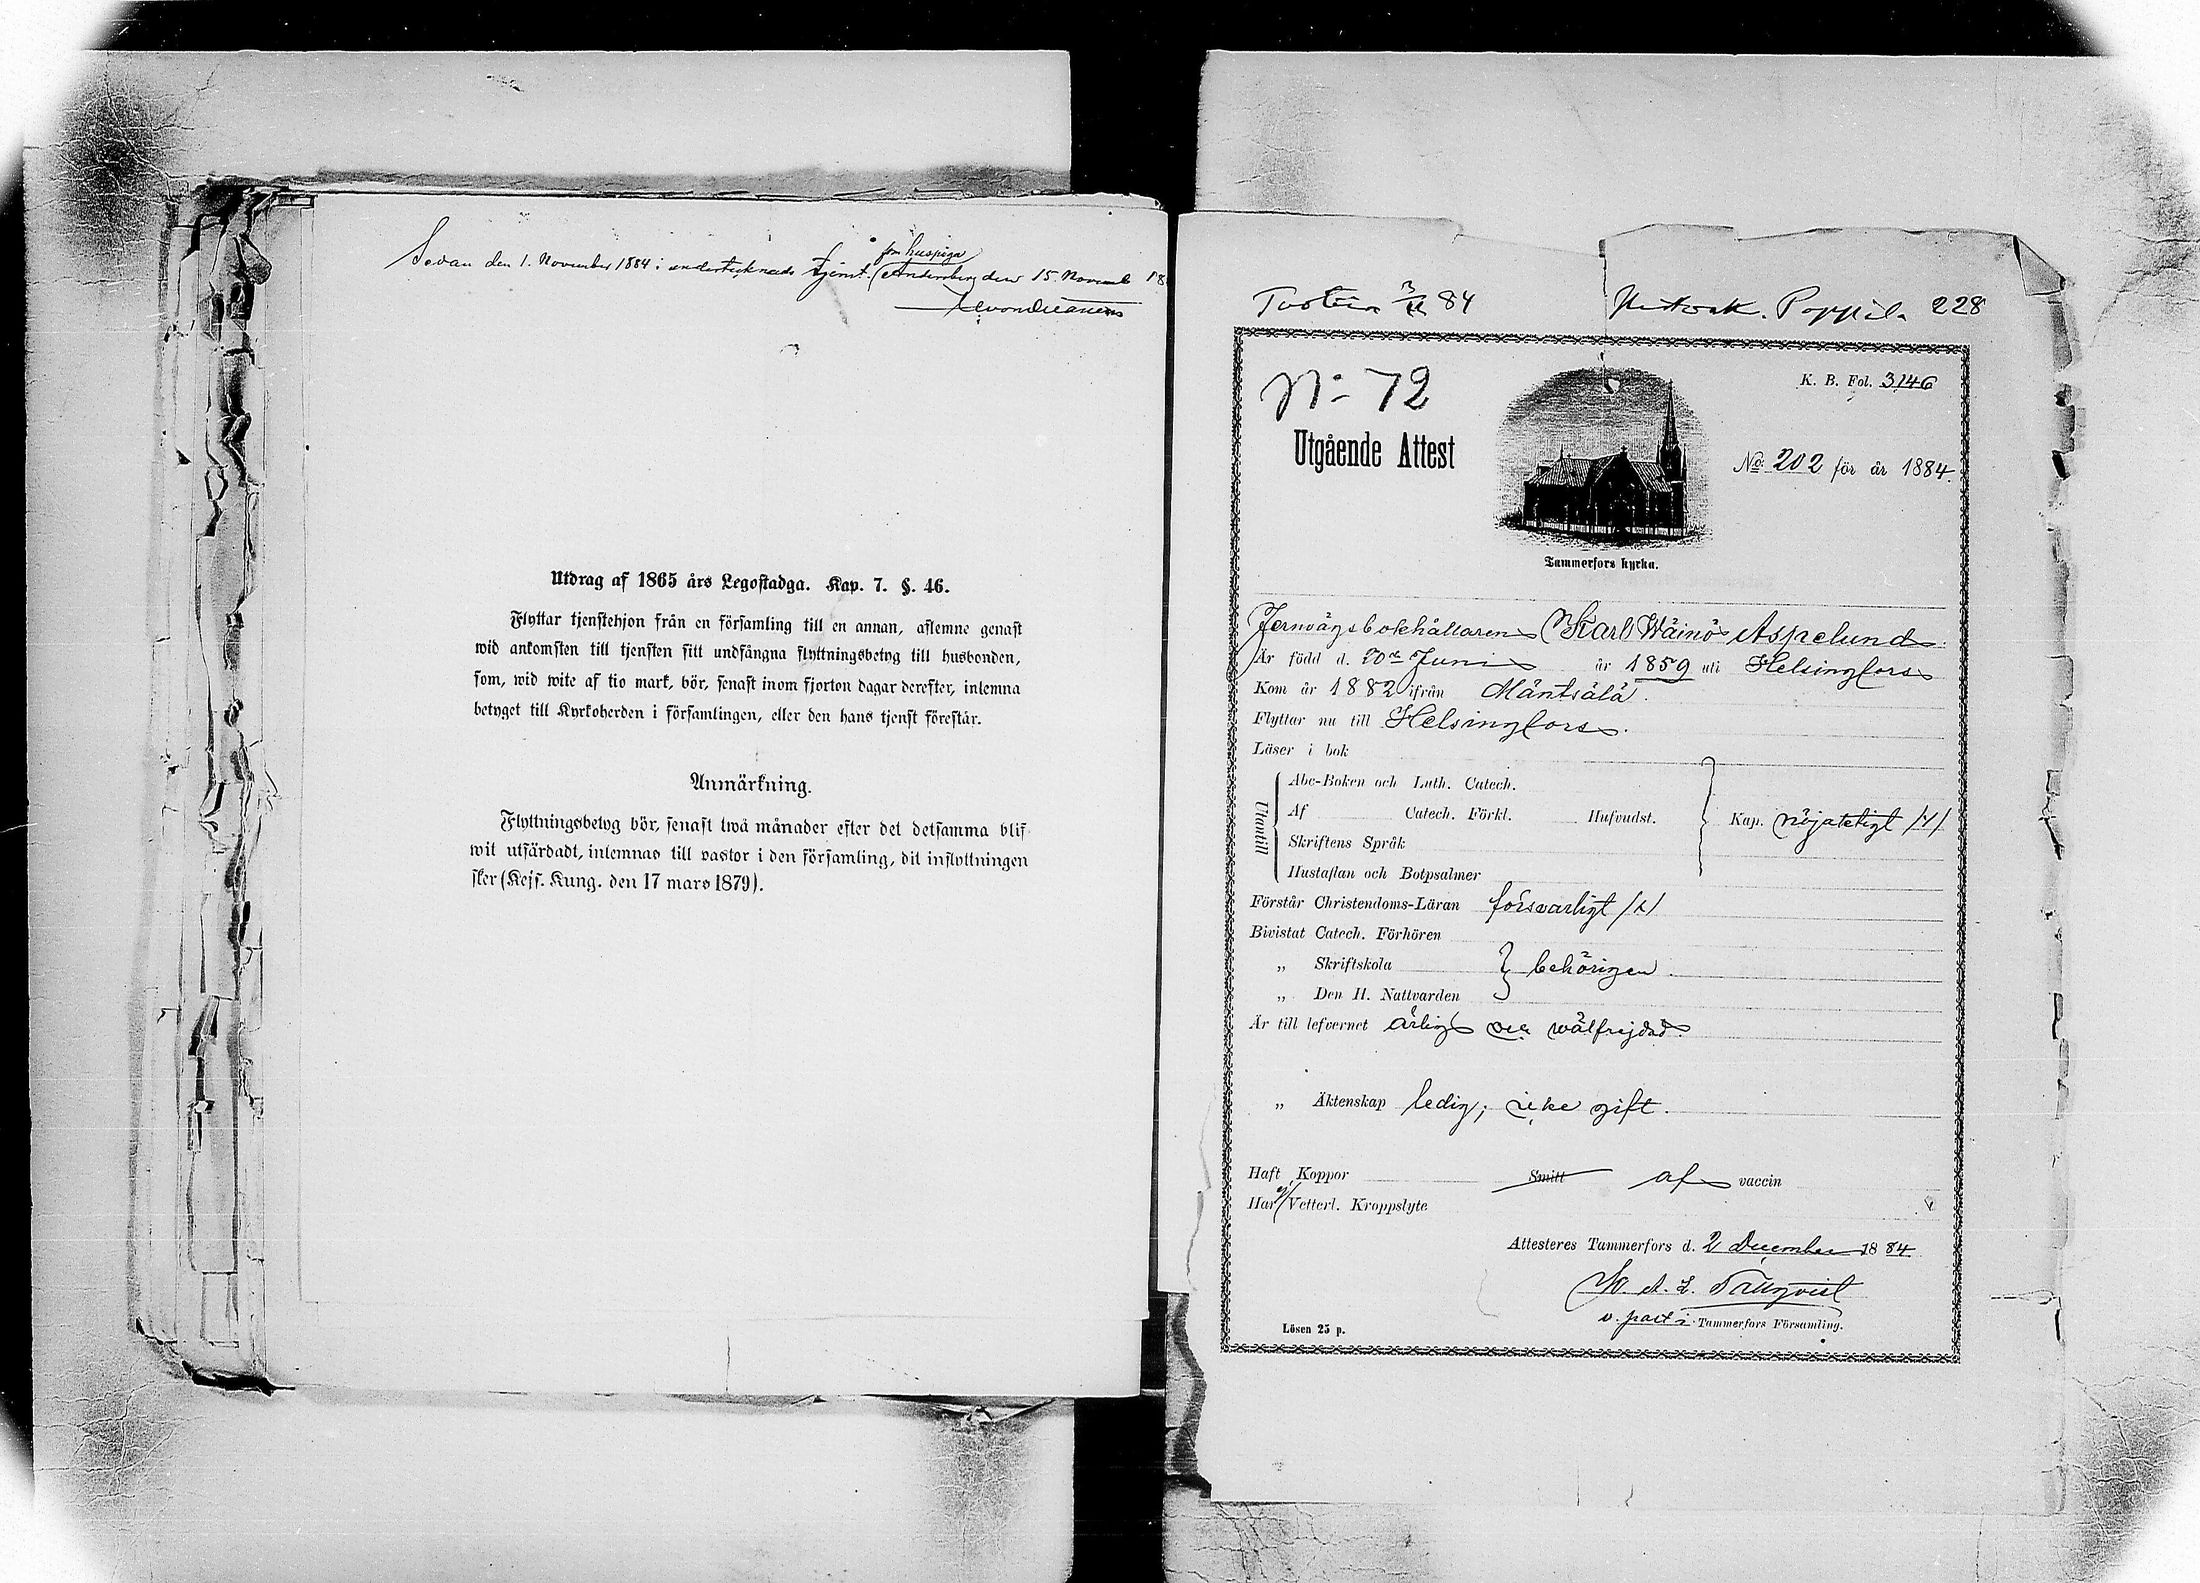 som huspiga
Sedan den 1. November 1884 i undertecknads tjenst. den 15. Novemb 18
Utdrag af 1865 års Legostadga. Kap. 7. §. 46.
Flyttar tjenstehjon från en församling till en annan, aflemne genast
wid ankomsten till tjensten sitt undfångna flyttningsbetyg till husbonden,
som, wid wite af tio mark, bör, senast inom fjorton dagar derefter, inlemna
betyget till Kyrkoherden i församlingen, eller den hans tjenst förestår.
Anmärkning.
Flyttningsbetyg bör, senast twå månader efter det detsamma blif-
wit utfärdadt, inlemnas till pastor i den församling, dit inflyttningen
sker (Kejs. Kung. den 17 mars 1879).
84 228
N: 72
K. B. Fol. 3146
Utgående Attest
No: 202 för år 1884.
Tammerfors kyrka.
Jernvägsbokhållaren Karl Wäinö Aspelund
Är född d. 20de Juni år 1859 uti Helsingfors
Kom år 1882 ifrån Mäntsälä.
Flyttar nu till Helsingfors.
Läser i bok
Utantill
Abc-Boken och Luth. Catech.
Af Catech. Förkl. Hufvudst. Kap. nöjaktigt /v/
Skriftens Språk
Hustaflan och Botpsalmer
Förstår Christendoms-Läran försvarligt
Bivistat Catech. Förhören
„ Skriftskola behörigen
„ Den H. Nattvarden
Är till lefvernet ärlig och wälfrejdad
„ Äktenskap ledig; icke gift.
Haft Koppor Smitt af vaccin
Har ej Vetterl. Kroppslyte
Attesteres Tammerfors d. 2 December 1884
v. past i Tammerfors Församling.
Lösen 25 p.